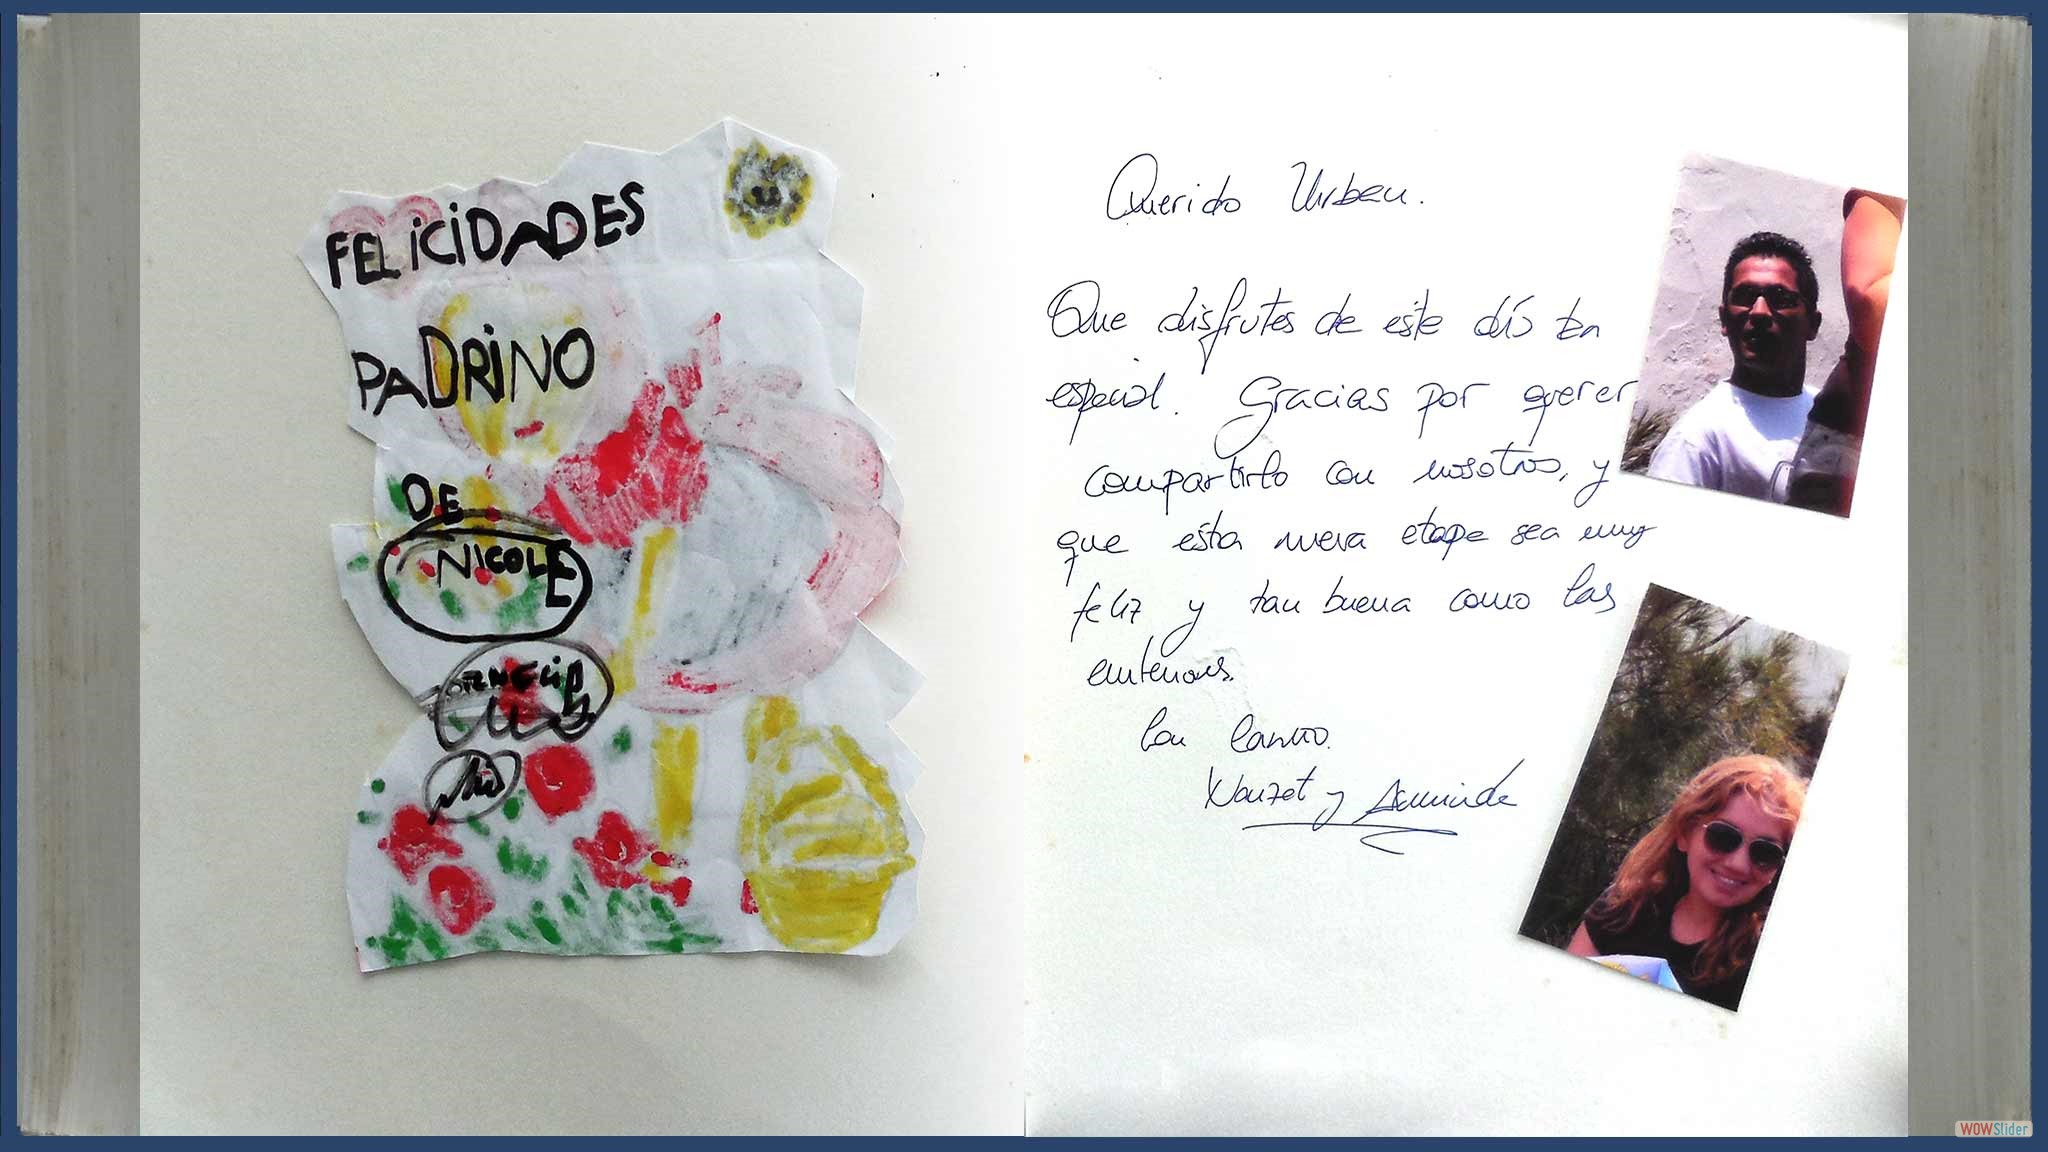 FELICIDADES
PADRINO
DE
NICOLE
Querido Urbau.
Que disfrutes de este día tan
especial. Gracias por querer
compartirlo con nosotros, y
que esta nueva etapa sea muy
feliz y tan buena como las
anteriores.
Con Cariño.
y
WOWSlider